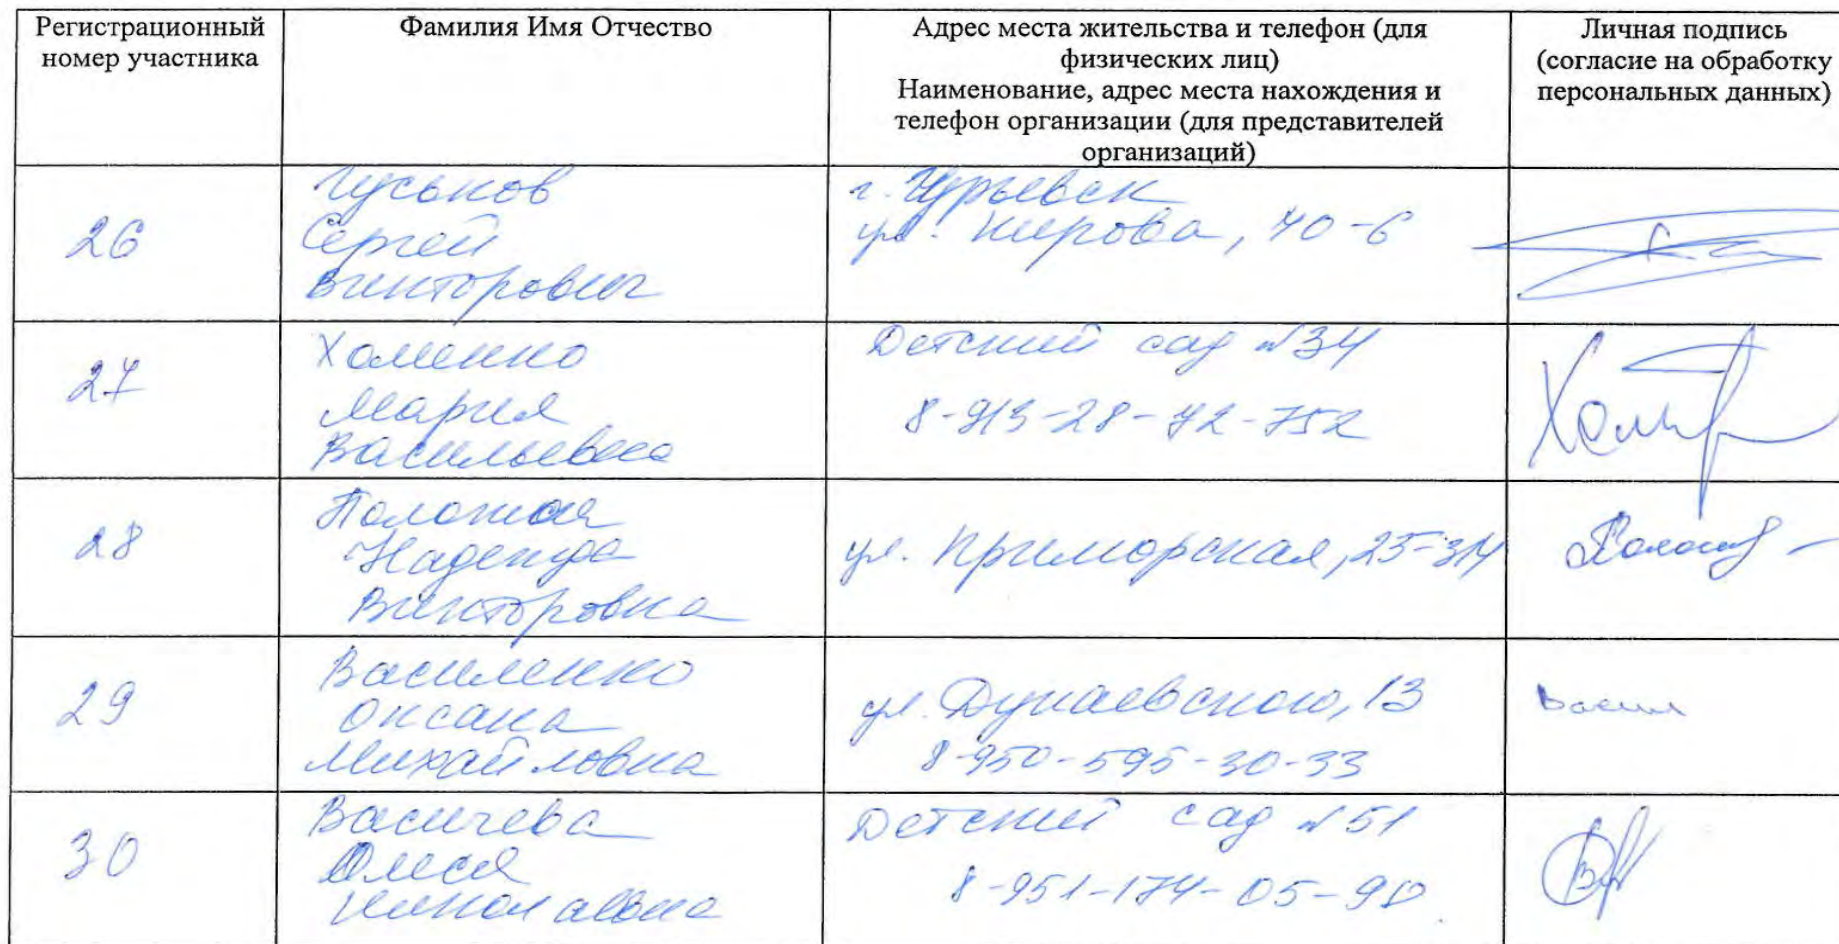 Регистрационный
номер участника
Фамилия Имя Отчество
Адрес места жительства и телефон (для
физических лиц)
Наименование, адрес места нахождения и
телефон организации (для представителей
организаций)
Личная подпись
(согласие на обработку
персональных данных)
26
Гуськов
Сергей
Викторович
г. Гурьевск
ул. Кирова, 40-6
27
Хоменко
Мария
Васильевна
Детский сад №34
8-913-28-72-752
28
Надежда
Викторовна
ул. Приморская, 25-314
29
Василенко
Оксана
Михайловна
ул. Дунаевского, 13
8-950-595-30-33
Васил
30
Васичева
Олеся
Николаевна
Детский сад №51
8-951-174-05-90